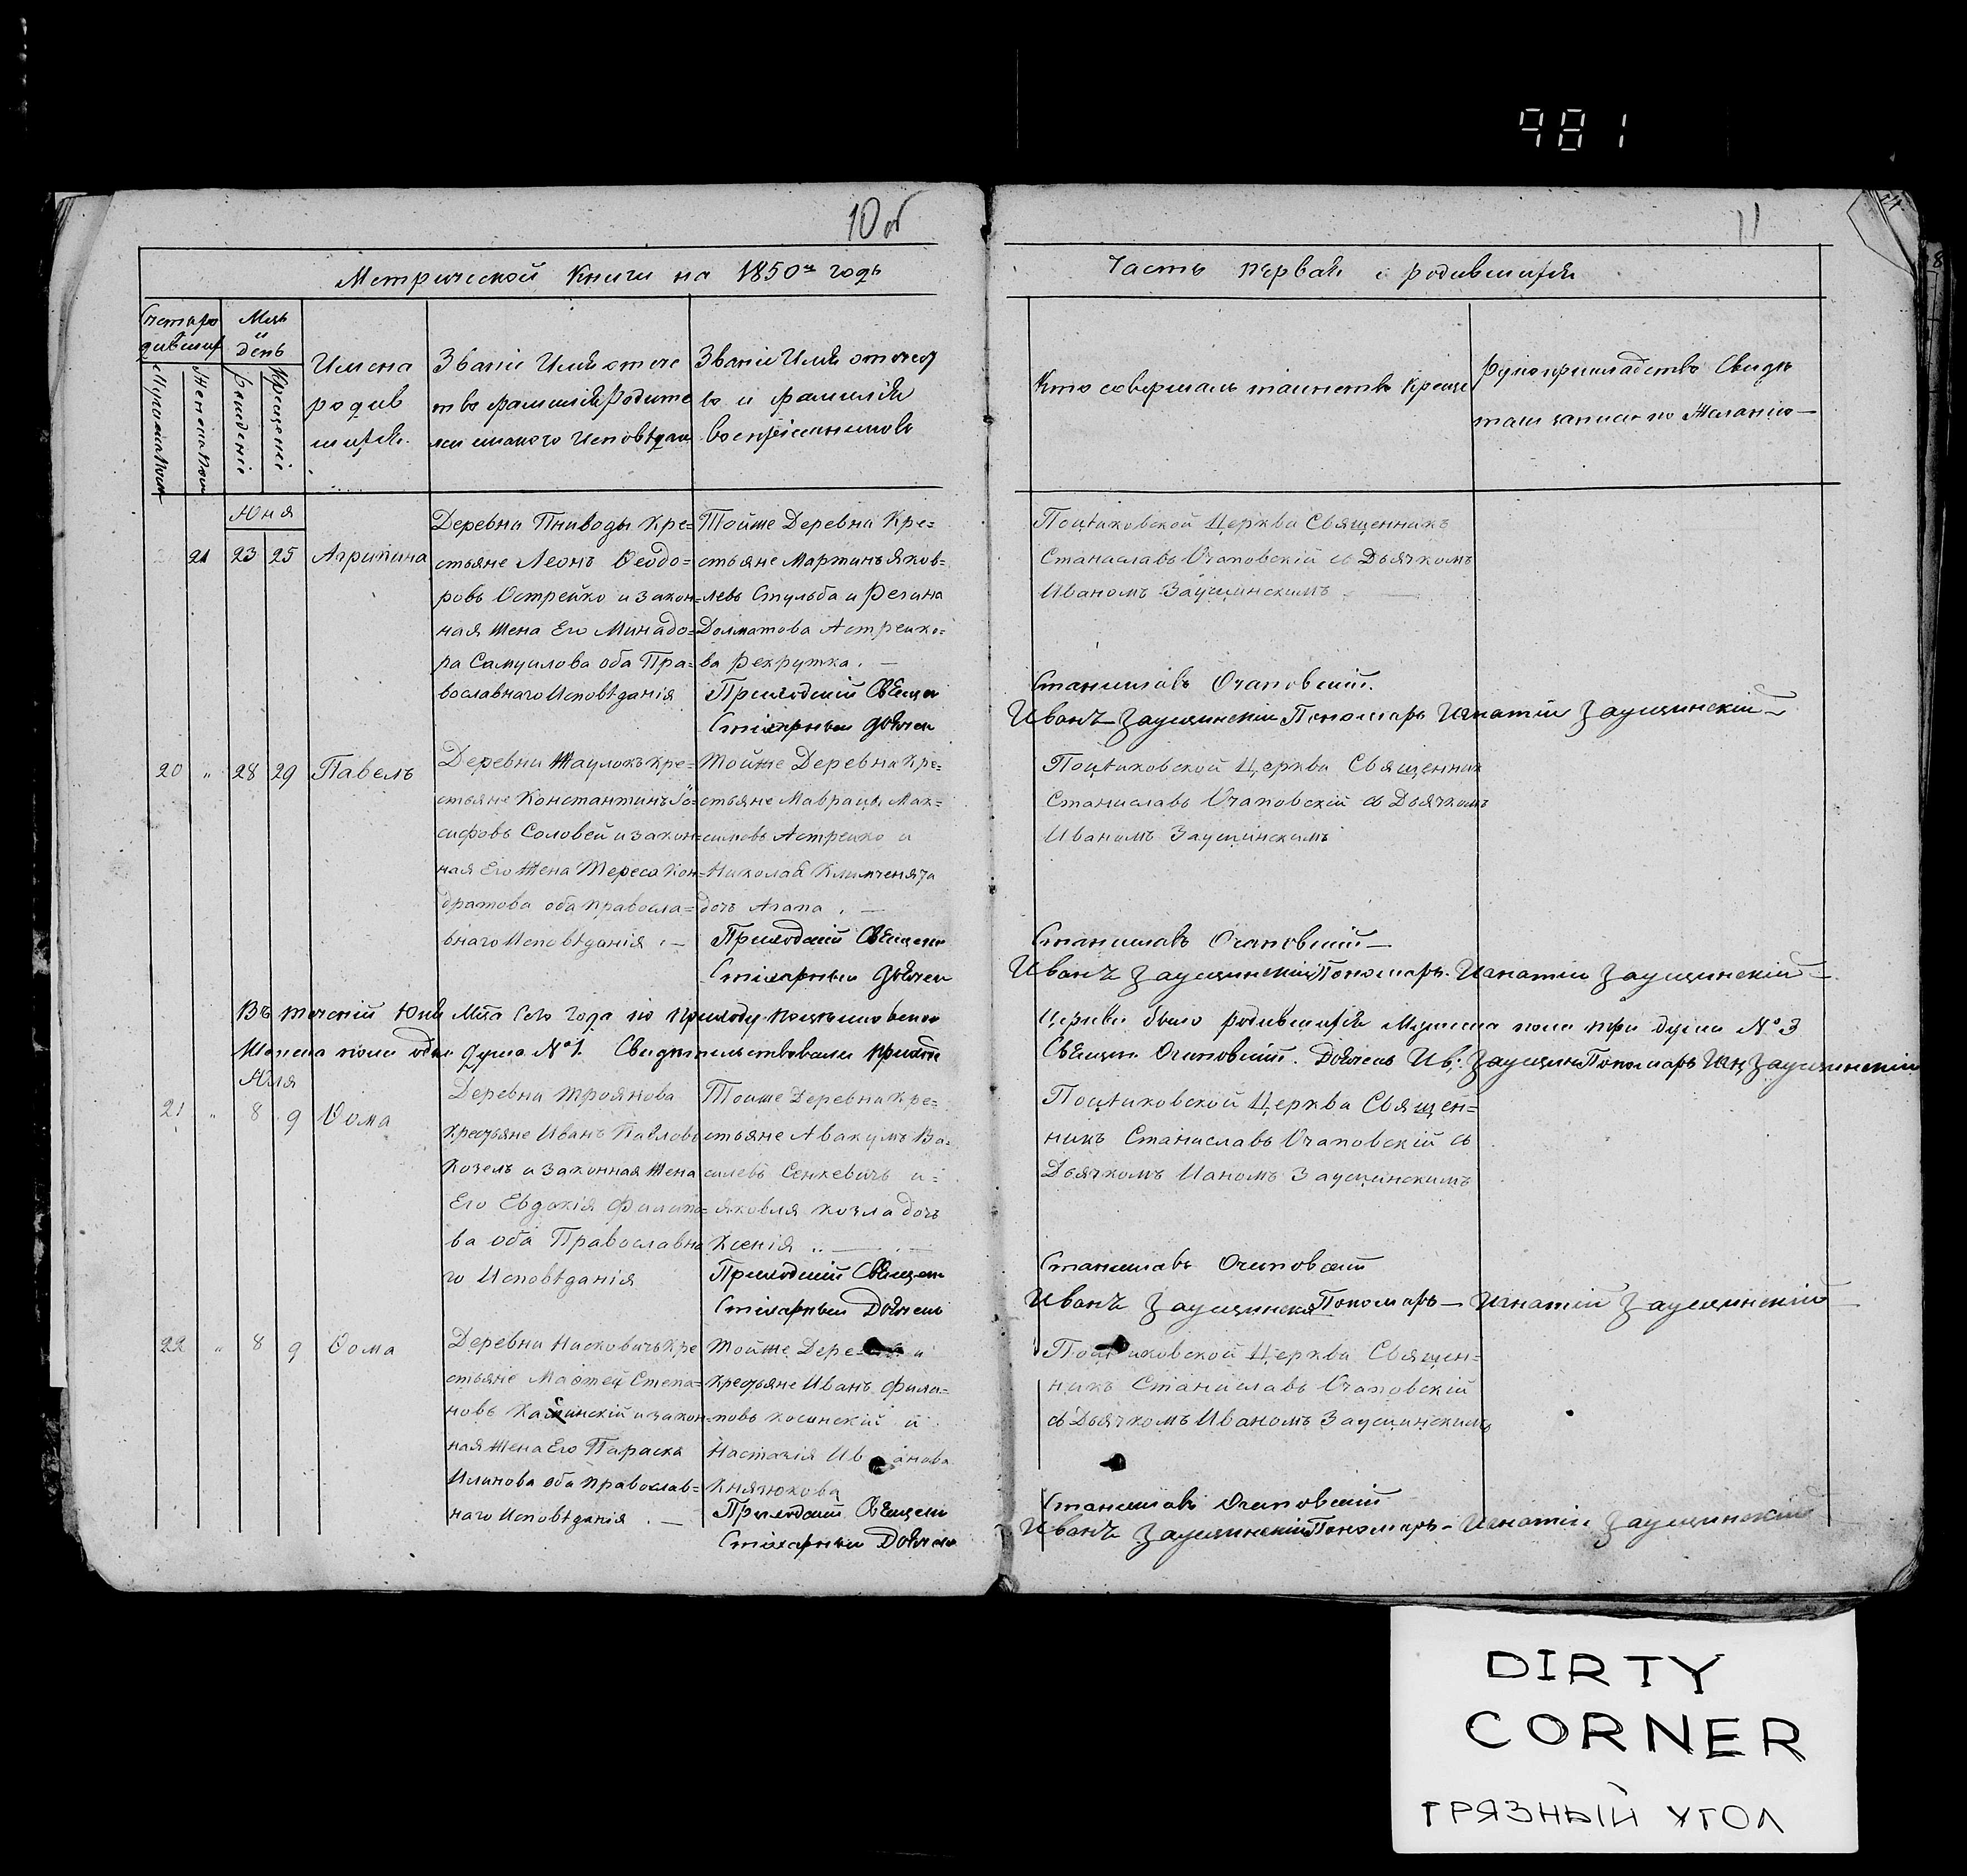 981
10 об
11
Метрической Книги на 1850й годъ
Часть первая о родившихся
Мць и день
Рожденіе
Крещеніе
Имена
родив
шихся.
Званіе Имя отече
тво фамилія Родите
лей и какого Исповѣдан
Званіе Имя отечест
во и фамилія
воспріемниковъ
Кто совершалъ таинство Креще
Рукоприкладство Свидѣ
тели записи по Желанію
Юня
21 23 25 Агрипина
Деревна Пниводы Кре=
стьяне Леонъ Ѳеодо=
ровъ Острейко и закон=
ная жена Его Минадо=
ра Самуилова оба Пра=
вославнаго Исповѣданія
Тойже Деревна Кре=
стьяне Мартинъ Яков=
левъ Стульба и Регина
Долматова Астрейко=
ва Рекрутка. —
Приходскій Священ
Стихарный Дьячек
Поцѣйковской Церква Священникъ
Станиславъ Очаповскій съ Дьячкомъ
Иваномъ Заущинскимъ
Станиславъ Очаповскій.
Иванъ Заущинскій Пономарь Игнатій Заущинскій
20 " 28 29 Павелъ
Деревни Жаулокъ Кре=
стьяне Константинъ Іо=
сифовъ Соловей и закон=
ная Его Жена Тереса Кон=
дратова оба правосла=
внаго Исповѣданія. —
Тойже Деревна Кре=
стьяне Маврацы Мак=
симовъ Астрейко и
Николая Климченяти
дочъ Агапа. —
Приходскій Священ
Стихарный Дьячек
Поцѣйковской Церква Священник
Станиславъ Очаповскій съ Дьячкомъ
Иваномъ Заущинскимъ
Станиславъ Очаповскій —
Иванъ Заущинскій Пономарь Игнатій Заущинскій —
Въ теченій Юня Мца Сего Года по Приходу Поцѣйковской
Церкви было родившихся Мужеска пола три души № 3
Женска пола одна Душа № 1. Свидѣтельствовали
Священ Очаповскій. Дьячекъ Ив: Заущин Пономарь Игн Заущинскій
Юля
21 " 8 9 Ѳома
Деревна Троянова
Крестьяне Иванъ Павловъ
Козелъ и Законная Жена
Его Евдокія Филипо=
ва оба Православна
го Исповѣданія
Тойже Деревна Кре=
стьяне Авакумъ Ва=
силевъ Сенкевичъ и=
Яковля Козла дочъ
Ксенія
Приходскій Священ
Стихарный Дьячекъ
Поцѣйковской Церква Священ=
никъ Станиславъ Очаповскій съ
Дьячкомъ Ианомъ Заущинскимъ
Станиславъ Очаповскій
Иванъ Заущинскій Пономарь — Игнатій Заущинскій
22 " 8 9 Ѳома
Деревни Насковичъ Кре
стьяне Маѳтей Степа=
новъ и закон=
ная Жена Его Параска
Илинова оба православ=
наго Исповѣданія. —
Тойже Дере
Крестьяне Иванъ Фили=
повъ Косинскій и
Настачія Иванова
Княчюкова
Приходскій Священ
Стихарный Дьячек
Поцѣйковской Церква Священ=
никъ Станиславъ Очаповскій
съ Дьячкомъ Иваномъ Заущинскимъ
Станиславъ Очаповскій
Иванъ Заущинскій Пономарь — Игнатій Заущинскій
DIRTY
CORNER
ГРЯЗНЫЙ УГОЛ